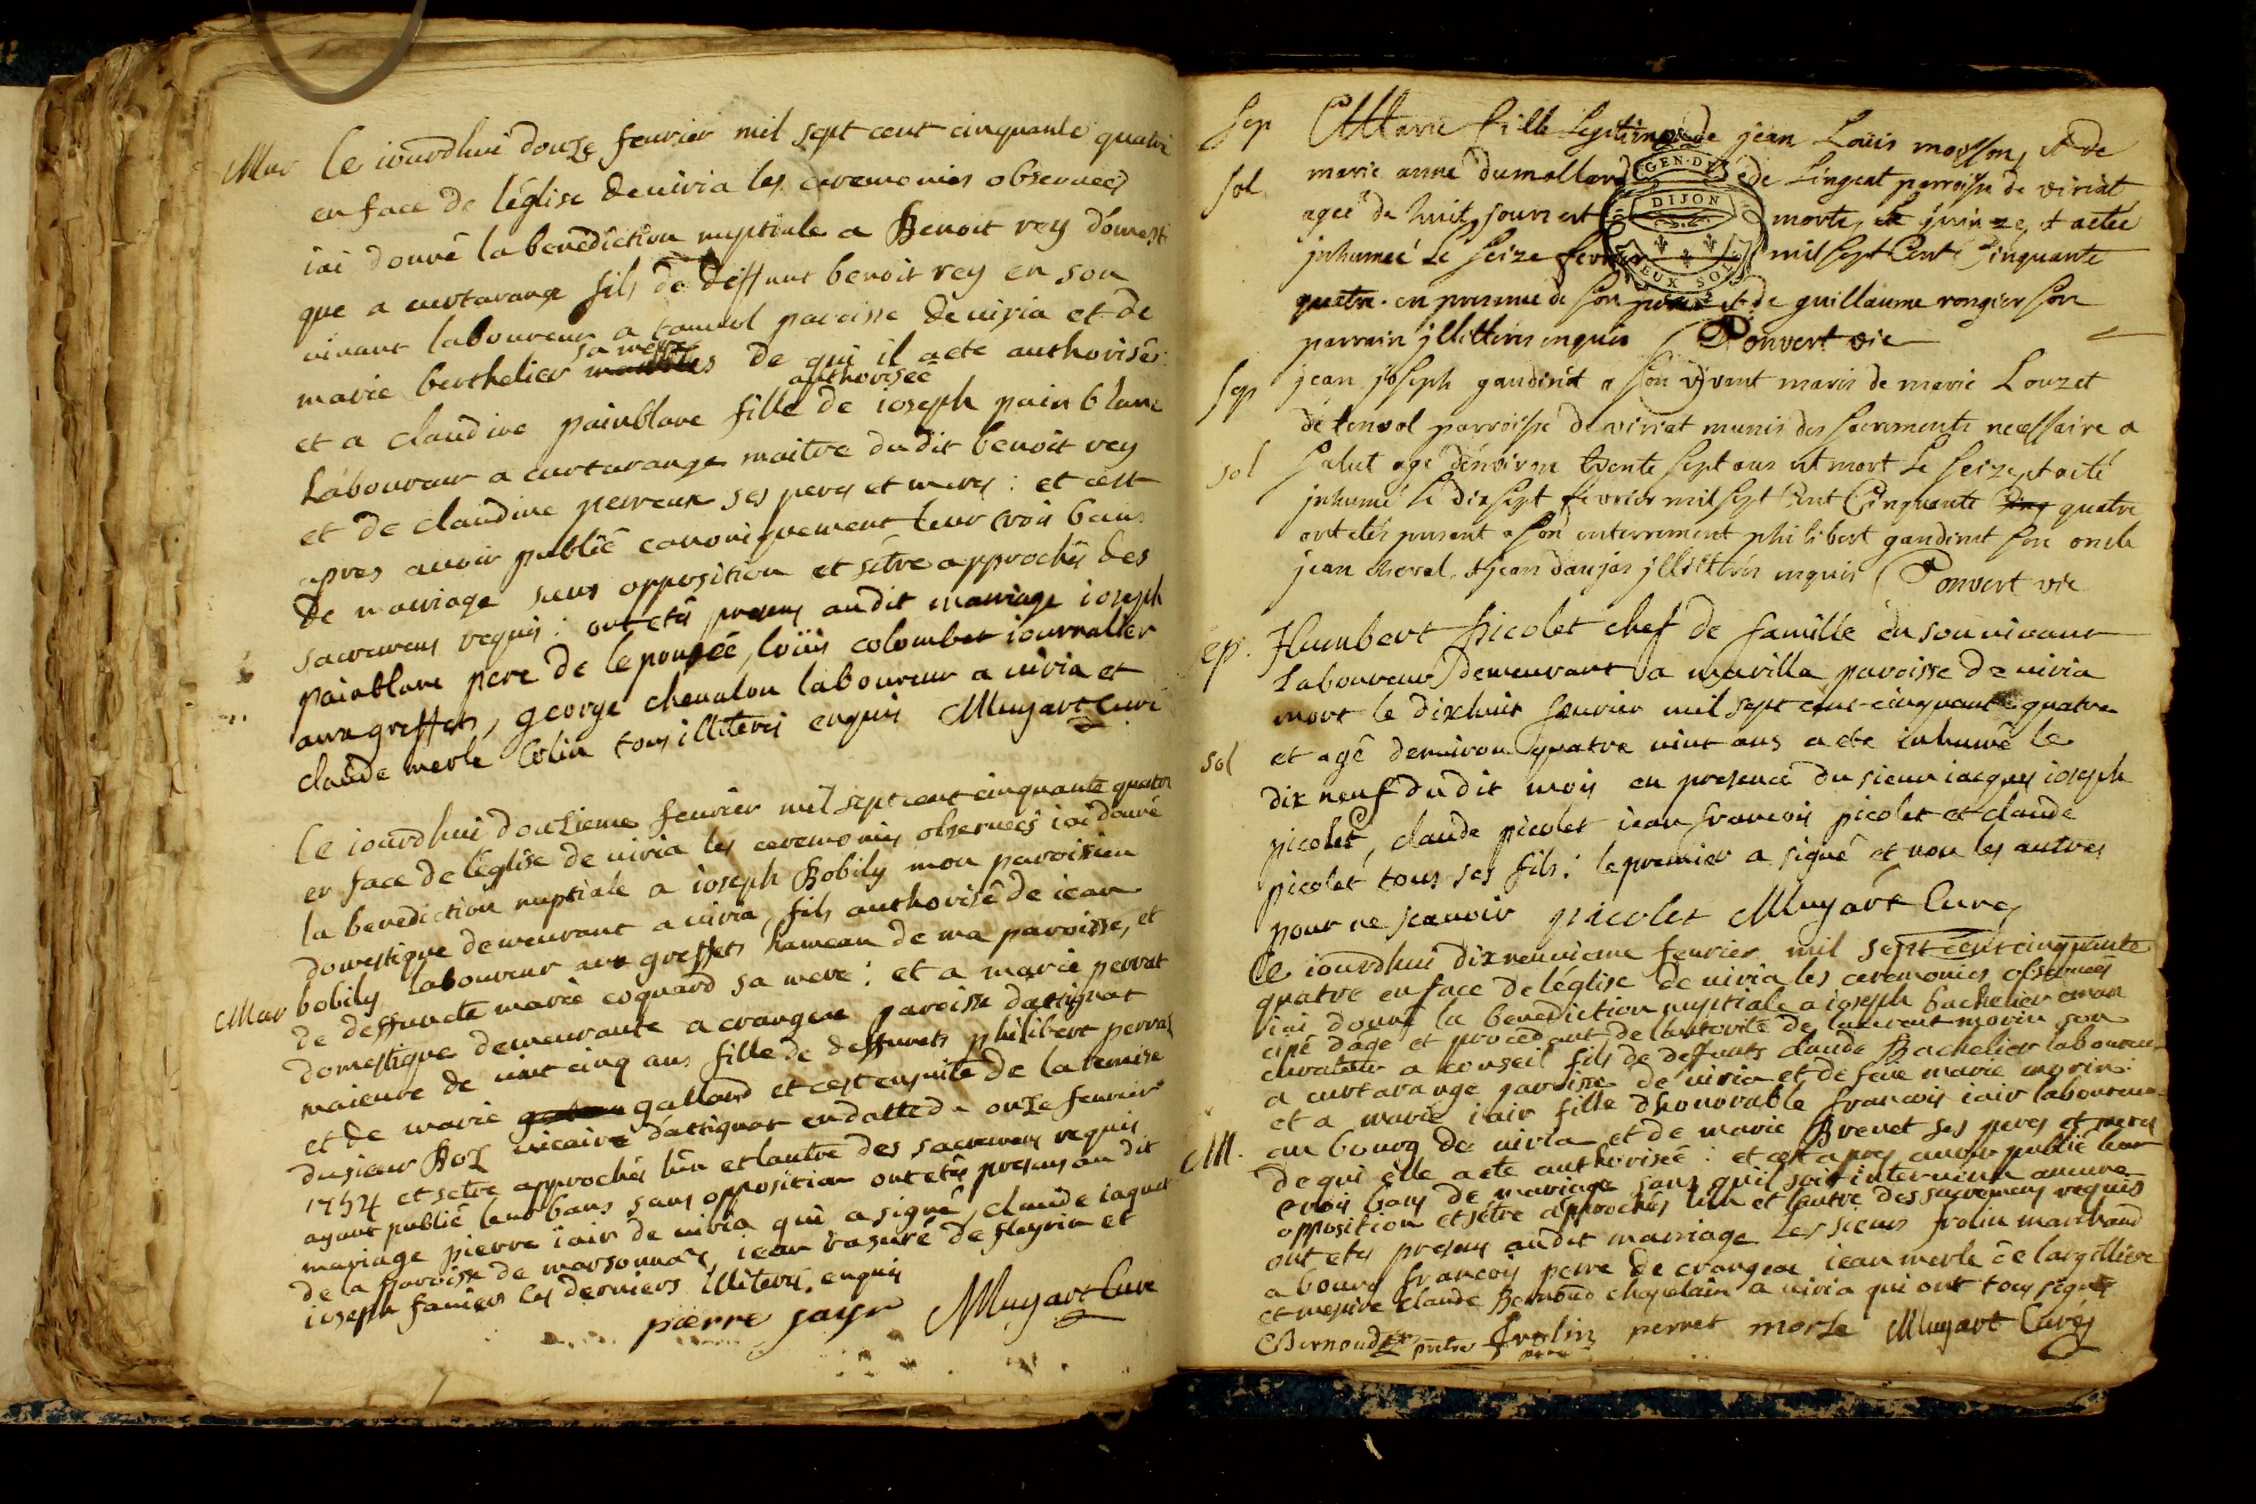 Mar le iourdhui douze feurier mil sept cent cinquante quatre
en face de léglise de viria les ceremonies obseruées
iai donné la benediction nuptiale a Benoit rey domesti
que a curtarange fils de deffunt benoit rey en son
viuant laboureur a tanuol paroisse de viria et de
marie berthelier sa mere de qui il a ete authorisé:
et a claudine painblanc fille authorisée de ioseph painblanc
Laboureur a curtarange maitre dudit benoit rey
et de claudine perreur ses peres et meres: et cest
apres auoir publié canoniquement leur trois bans
de mariage sans opposition et sétre approchés des
sacremens requis: ont etés presens audit mariage ioseph
painblanc pere de lepousée, loüis colomber iournalier
aux greffets, george cheualon laboureur a viria et
claude merle Colin tous illiterés enquis Mugart Curé
le iourdhui douzieme feurier mil sept cent cinquante quatre
en face de léglise de viria les ceremonies obseruées iai donné
la benediction nuptiale a ioseph Bobily mon paroissien
domestique demeurant a viria, fils authorisé de iean
Mar bobily laboureur aux greffets hameau de ma paroisse, et
de deffuncte marie coquard sa mere: et a marie perrat
domestique demeurante a crangeac paroisse dattignat
maieure de vint cinq ans fille de deffuncts philibert perrat
et de marie gallard et cest ensuite de la remise
du sieur Boz vicaire dattignat en datte du onze feurier
1754 et sétre approchés lun et lautre des sacremens requis
ayant publié leur bans sans opposition ont etés presens au dit
mariage pierre iair de viria qui a signé, claude iaquet
de la paroisse de marsonnas, iean rasuré de fleyria et
ioseph les derniers illiterés enquis
pierre jayr Mugart Curé
Sep Marie fille legitime de jean Louis moisson, et de
marie anne dumollard de Lingeat parroisse de viriat
sol agée de huit jours est morte, le quinze, et a etée
jnhumeé Le seize fevrier mil sept Cent Cinquante
quatre. en presence de son pere et de guillaume rongier son
parrain jllitterés enquis Ponvert vic
Sep jean joseph gaudinet a son vivant maris de marie Louzet
de tenvol parroisse de viriat munis des sacrements necessaire a
sol salut agé d'environ trente sept ans est mort Le seize et a eté
jnhumé le dix sept fevrier mil sept Cent Cinquante quatre
ont etés present a son enterrement philibert gaudinet son oncle
jean cheval, et jean daujas jllittérés enquis Ponvert vic
Sep. Humbert picolet chef de famille en son viuant
Laboureur demeurant a marilla paroisse de viria
mort le dixhuit feurier mil sept cent cinquante quatre
sol et agé denuiron quatre vint ans a ete inhumé le
dix neuf du dit mois en presence du sieur iacques ioseph
picolet, claude picolet iean francois picolet et claude
picolet tous ses fils: le premier a signé et non les autres
pour ne scauoir picolet Mugart Curé
Ce iourdhui dixneuuieme feurier mil sept cent cinquante
quatre en face de léglise de viria les ceremonies obseruées
iai donné la benediction nuptiale a ioseph bachelier eman
cipé dage et procedant de lautorité de laurent morin son
curateur a conseil fils de deffunts claude Bachelier laboureur
a curtarange paroisse de viria et de feue marie morin:
et a marie iair fille dhonorable francois iair laboureur
M. au bourg de viria et de marie Brevet ses peres et meres
de qui elle a ete authorisée: et cest apres auoir publié leur
trois bans de mariage sans quil soit interuenu aucune
opposition et sétre approchés lun et lautre des sacremens requis
ont etés presens audit mariage Les sieurs frolin marchand
a bourg francois perret de crangeac iean merle de largilliere
et messire claude Bernoud chapelain a viria qui ont tous signés
Bernoud ptre frolin perret morle Mugart Curé
GEN·DE
DIJON
DEUX SOLS